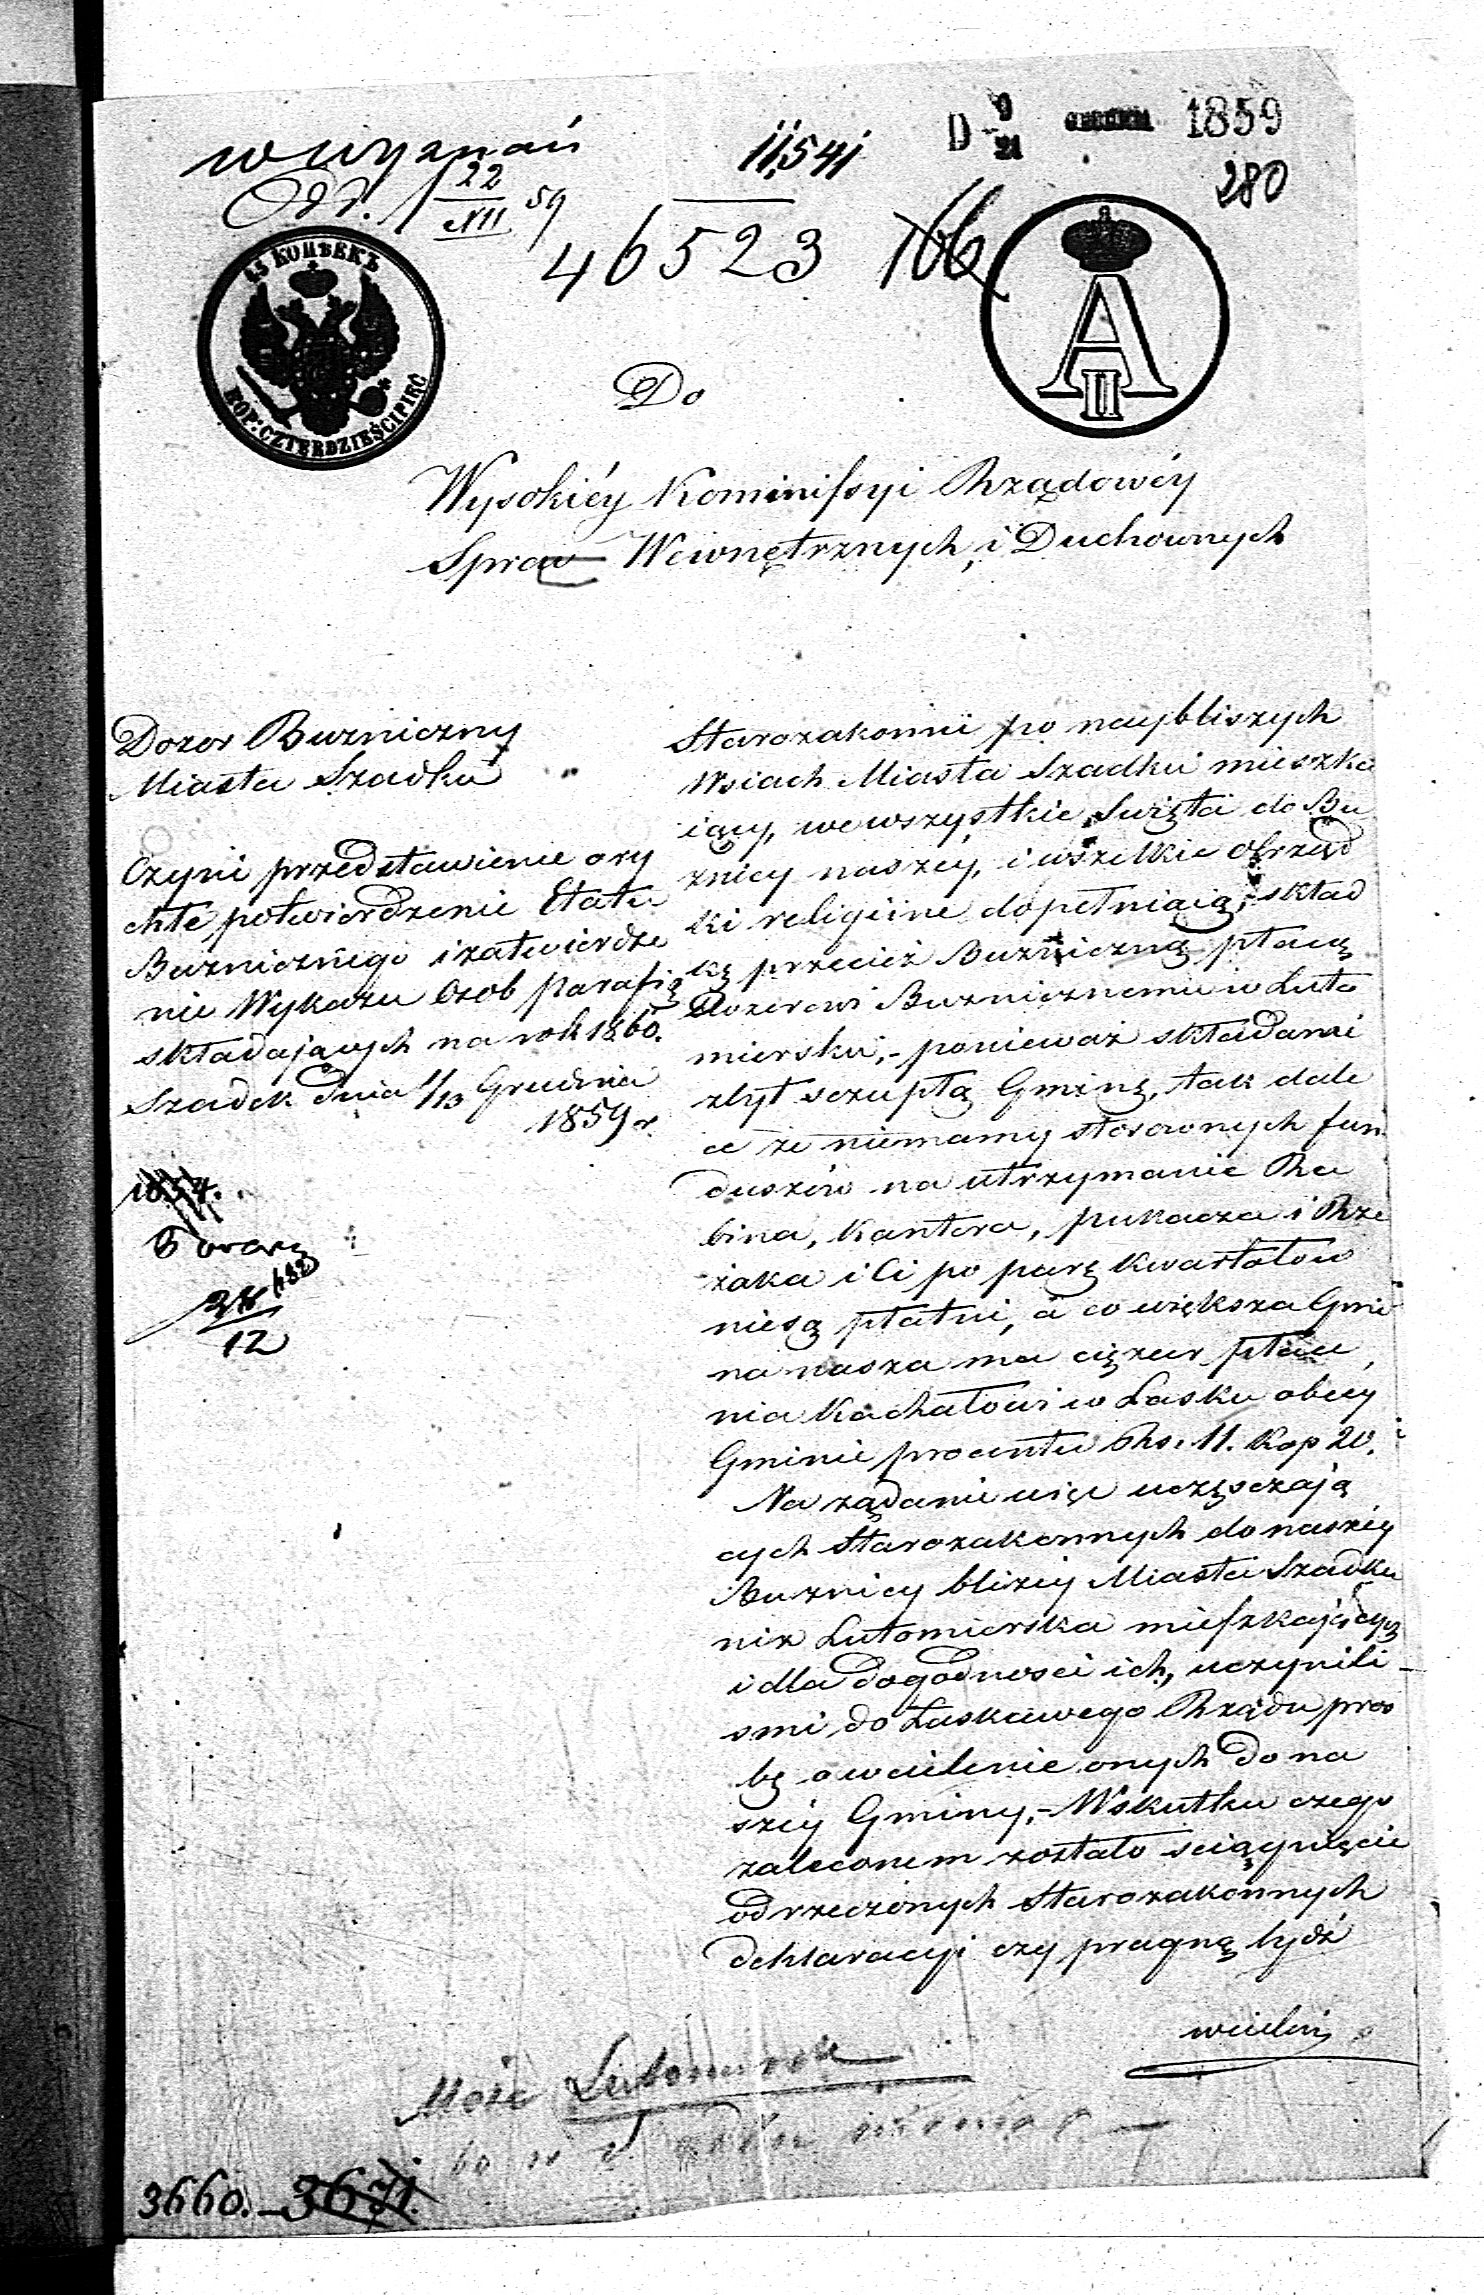 D 9/21 1859
W Wyznań 11,541
280
Odd. 1 22/XII 59
46523 166
45 КОПѢЕКЪ
KOP: CZTERDZIEŚCI PIĘĆ
A II
Do
Wysokiéy Kommifsyi Rządowéy
Spraw Wewnętrznych, i Duchownych
Dozor Buzniczny
Miasta Szadku
Czyni przedstawienie o ry
chłe potwierdzenie Etatu
Buznicznego i zatwierdze
nie Wykazu Osob parafią
składających na rok 1860.
Szadek dnia 1/13 Grudnia
1859 r.
1854.
3660. 3671.
Starozakonni po naybliszych
Wsiach Miasta Szadku mieszka
iący, we wszystkie Święta do Bu
znicy naszéy, i wszelkie obrząd
ki religiine dopełniaią, skład
kę przecież Buzniczną płacą
Dozorowi Buznicznemu w Luto
miersku,- ponieważ składami
zbyt sczupłą Gminę, tak dale
ce że niemamy stosownych fun
duszów na utrzymanie Ra
bina, Kantora, pukacza i Rze
żaka i Ci po parę kwartałów
niesą płatni, a co większa Gmi
na nasza ma cięzar płace
nia Kachałowi w Lasku obcéy
Gminie procentu Rs. 11. Kop 20.
Na żądanie więc uczęsczają
cych Starozakonnych do naszéy
Buznicy bliżéy Miasta Szadku
niz Lutomierska miefzkających
i dla dogodnosci ich, uczynili -
smi do Łaskawego Rządu proś
bę o wcielenie onych do na
széy Gminy,- Wskutku czego
zaleconem zostało sciągnięcie
od rzeczonych Starozakonnych
deklaracyi czy pragną bydź
wcieleni
Może Lutomiersk